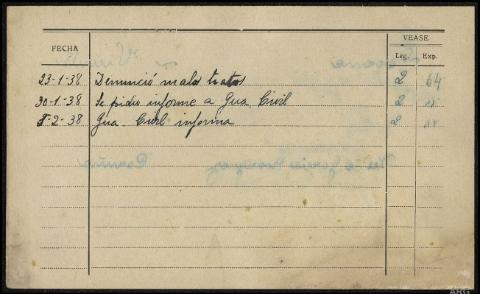 FECHA VEASE
Leg. Exp.
23-1-38 Denunció malos tratos 2 64
30-1-38 Se pidió informe a Gua. Civil 2 "
8-2-38 Gua. Civil informa 2 "
ARG